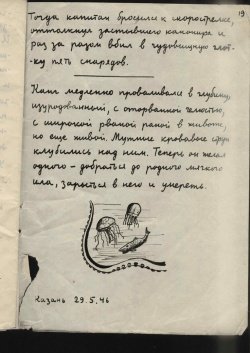 19
Тогда капитан бросился к скорострелке,
оттолкнул застывшего канонира и
раз за разом вбил в чудовищную глот-
ку пять снарядов.
Каин медленно проваливался в глубину,
изуродованный, с оторванной челюстью,
с широкой рваной раной в животе,
но еще живой. Мутные кровавые струи
клубились над ним. Теперь он желал
одного – добраться до родного мягкого
ила, зарыться в него и умереть.
Казань 29.5.46